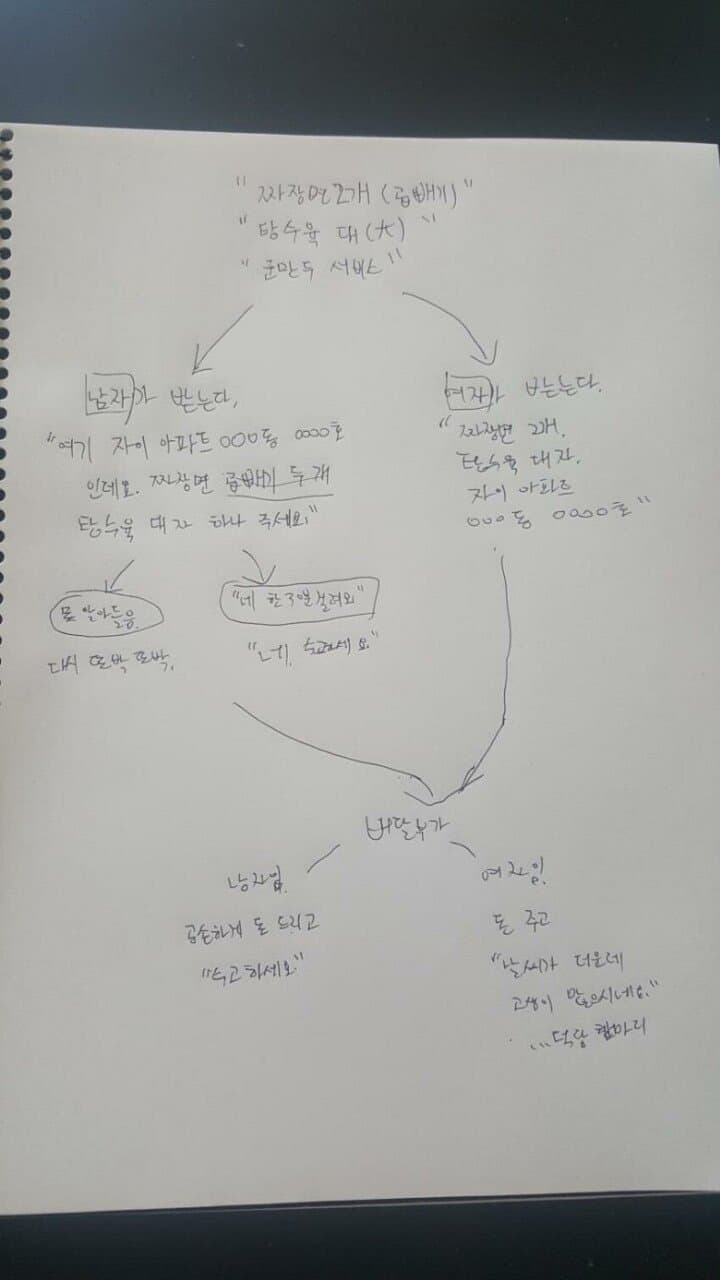 "짜장면2개 (곱빼기)"
"탕수육 대(大)"
"군만두 서비스"
남자가 받는다.
"여기 자이 아파트 000동 0000호
인데요. 짜장면 곱빼기 두개
탕수육 대자 하나 주세요"
못 알아들음.
다시 또박 또박.
"네 한 30분걸려요"
"네, 수고하세요"
여자가 받는다.
"짜장면 2개.
탕수육 대자.
자이 아파트
000동 0000호"
배달부가
남자임.
공손하게 돈 드리고
"수고하세요"
여자임.
돈 주고
"날씨가 더운데
고생이 많으시네요."
...덕담 한마디